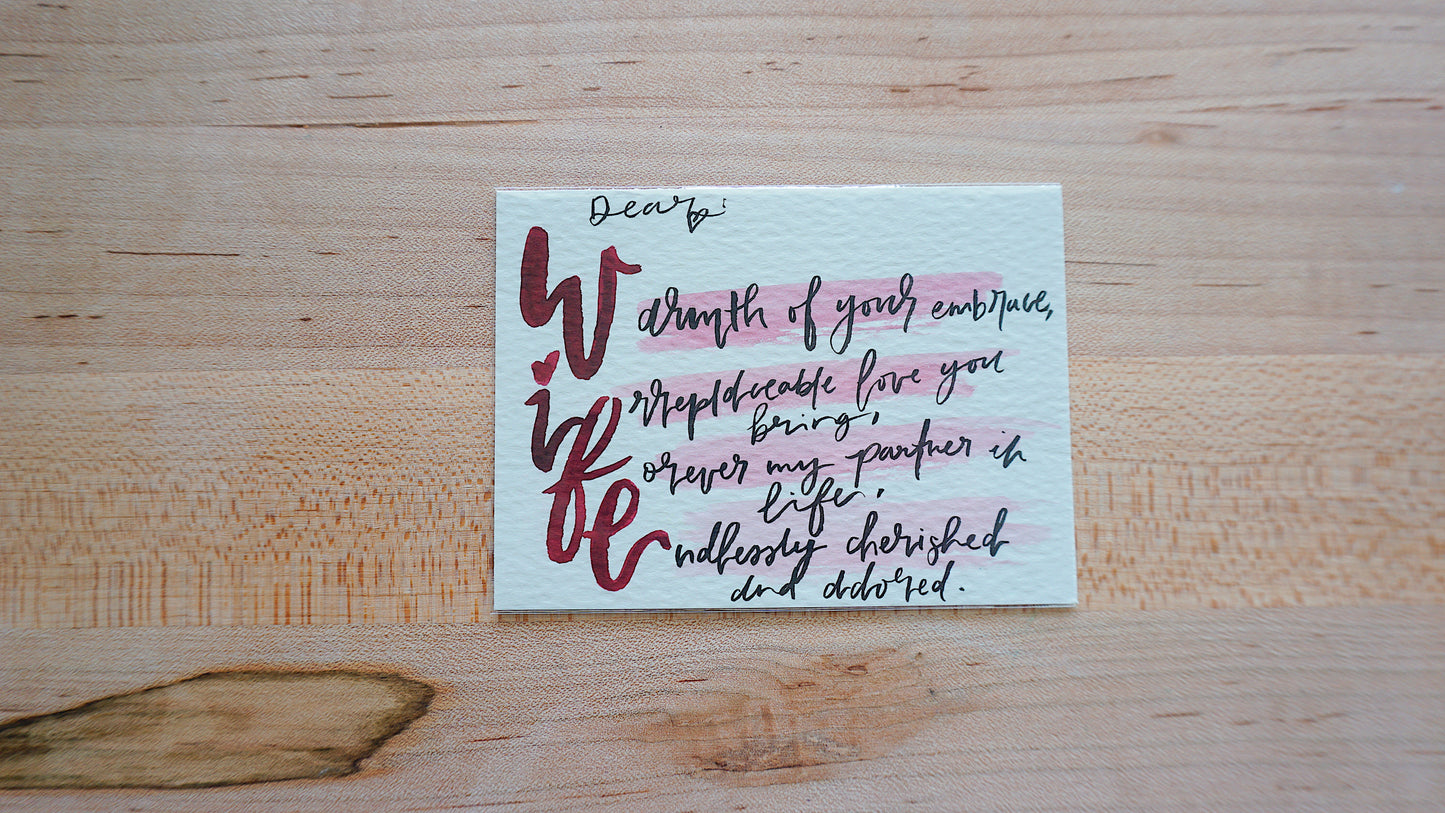 Dear
Warmth of your embrace,
irreplaceable love you
bring,
forever my partner in
life,
endlessly cherished
and adored.